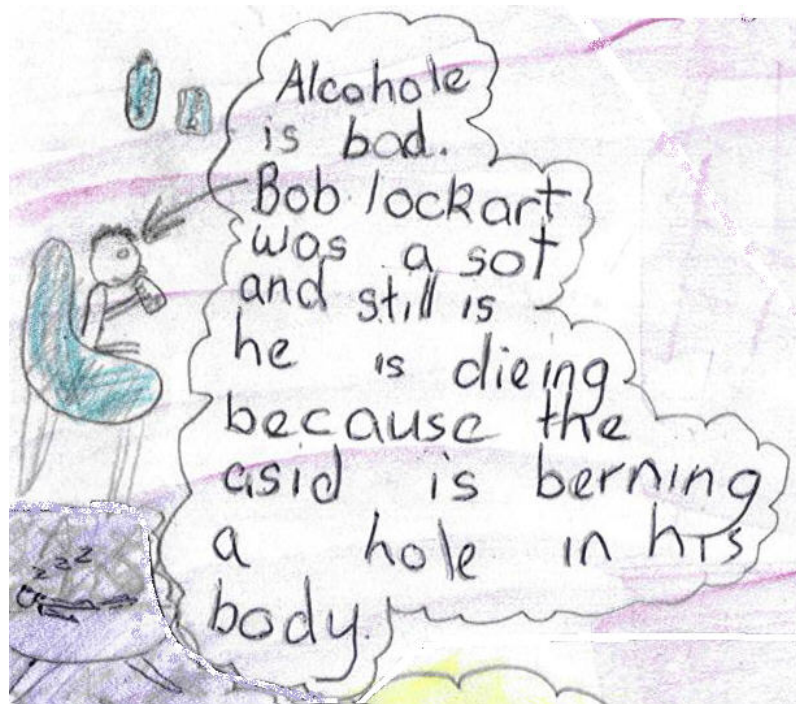 Alcohole
is bad.
Bob lockart
was a sot
and still is
he is dieing
because the
asid is berning
a hole in his
body.
zzz